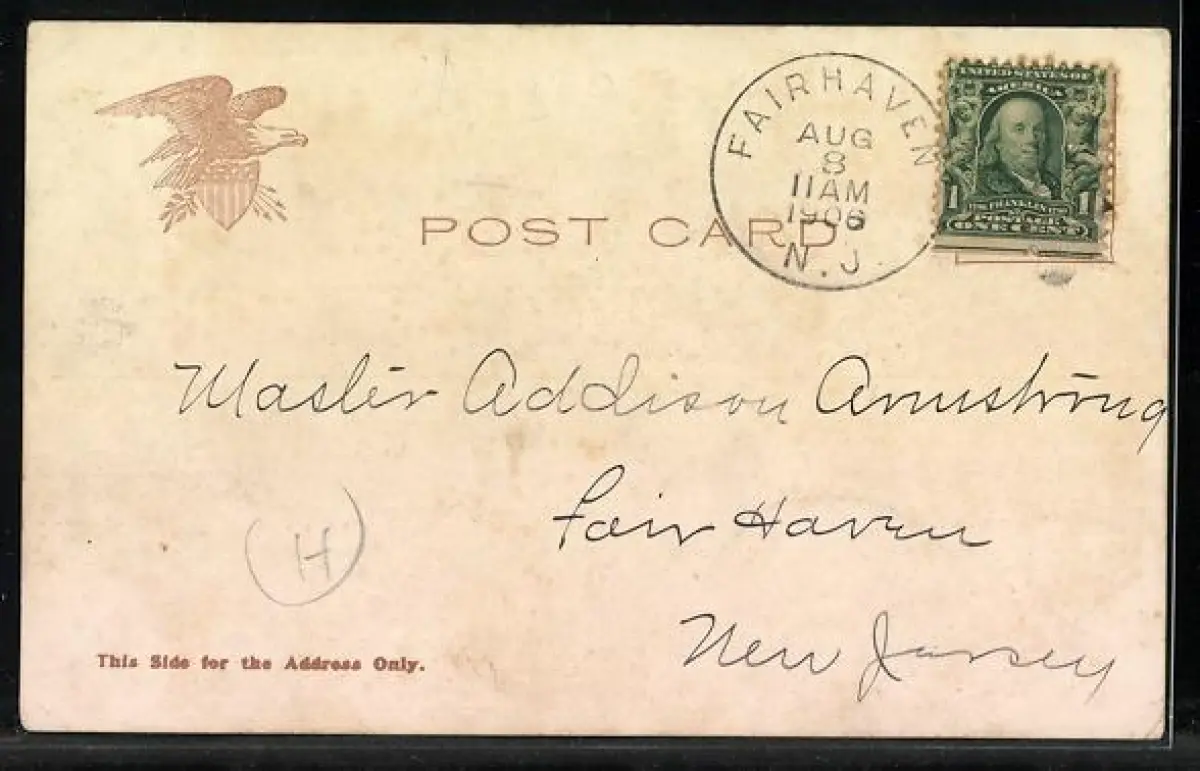 FAIRHAVEN
AUG
8
11AM
1906
N.J.
UNITED STATES OF
AMERICA
1 FRANKLIN 1
POSTAGE
ONE CENT
POST CARD
Master Addison Armstrong
Fair Haven
New Jersey
H
This Side for the Address Only.